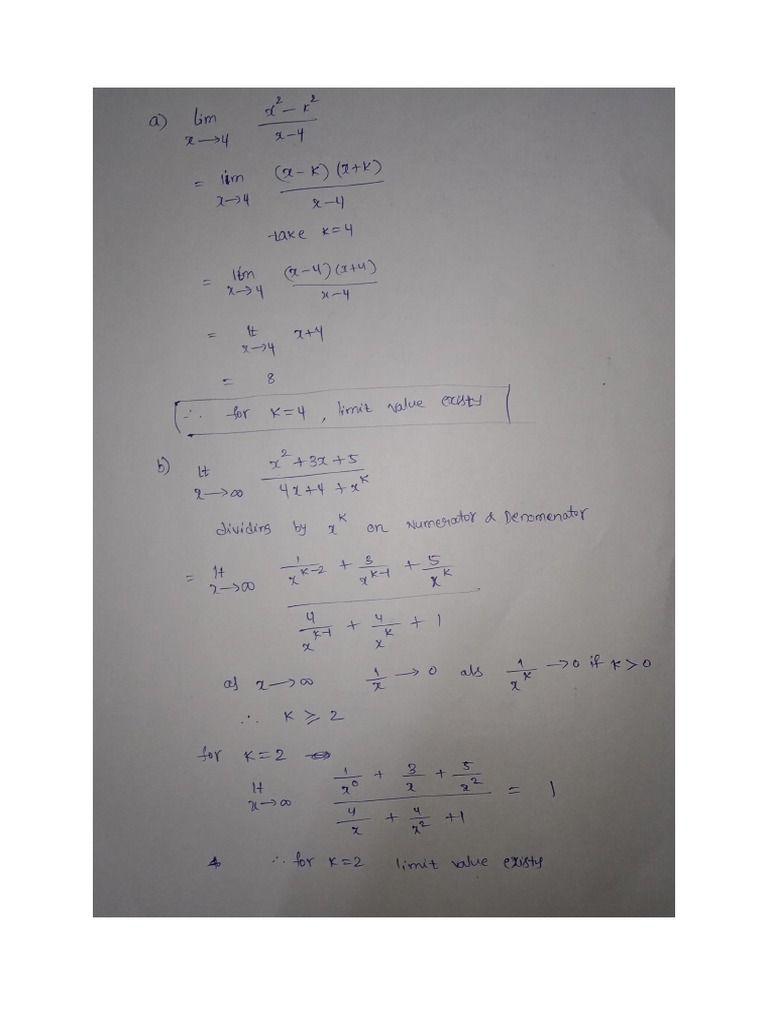 a) lim x→4 (x² − k²)/(x−4)
= lim x→4 (x−k)(x+k)/(x−4)
take k=4
= ltm x→4 (x−4)(x+4)/(x−4)
= lt x→4 x+4
= 8
∴ for k=4, limit value existy
b) lt x→∞ (x²+3x+5)/(4x+4+x^k)
dividing by x^k on Numerator & Denomenator
= lt x→∞ (1/x^(k−2) + 3/x^(k−1) + 5/x^k)/(4/x^(k−1) + 4/x^k + 1)
as x→∞ 1/x → 0 als 1/x^k → 0 if k>0
∴ k ⩾ 2
for k=2
lt x→∞ (1/x⁰ + 3/x + 5/x²)/(4/x + 4/x² + 1) = 1
∴ for k=2 limit value existy